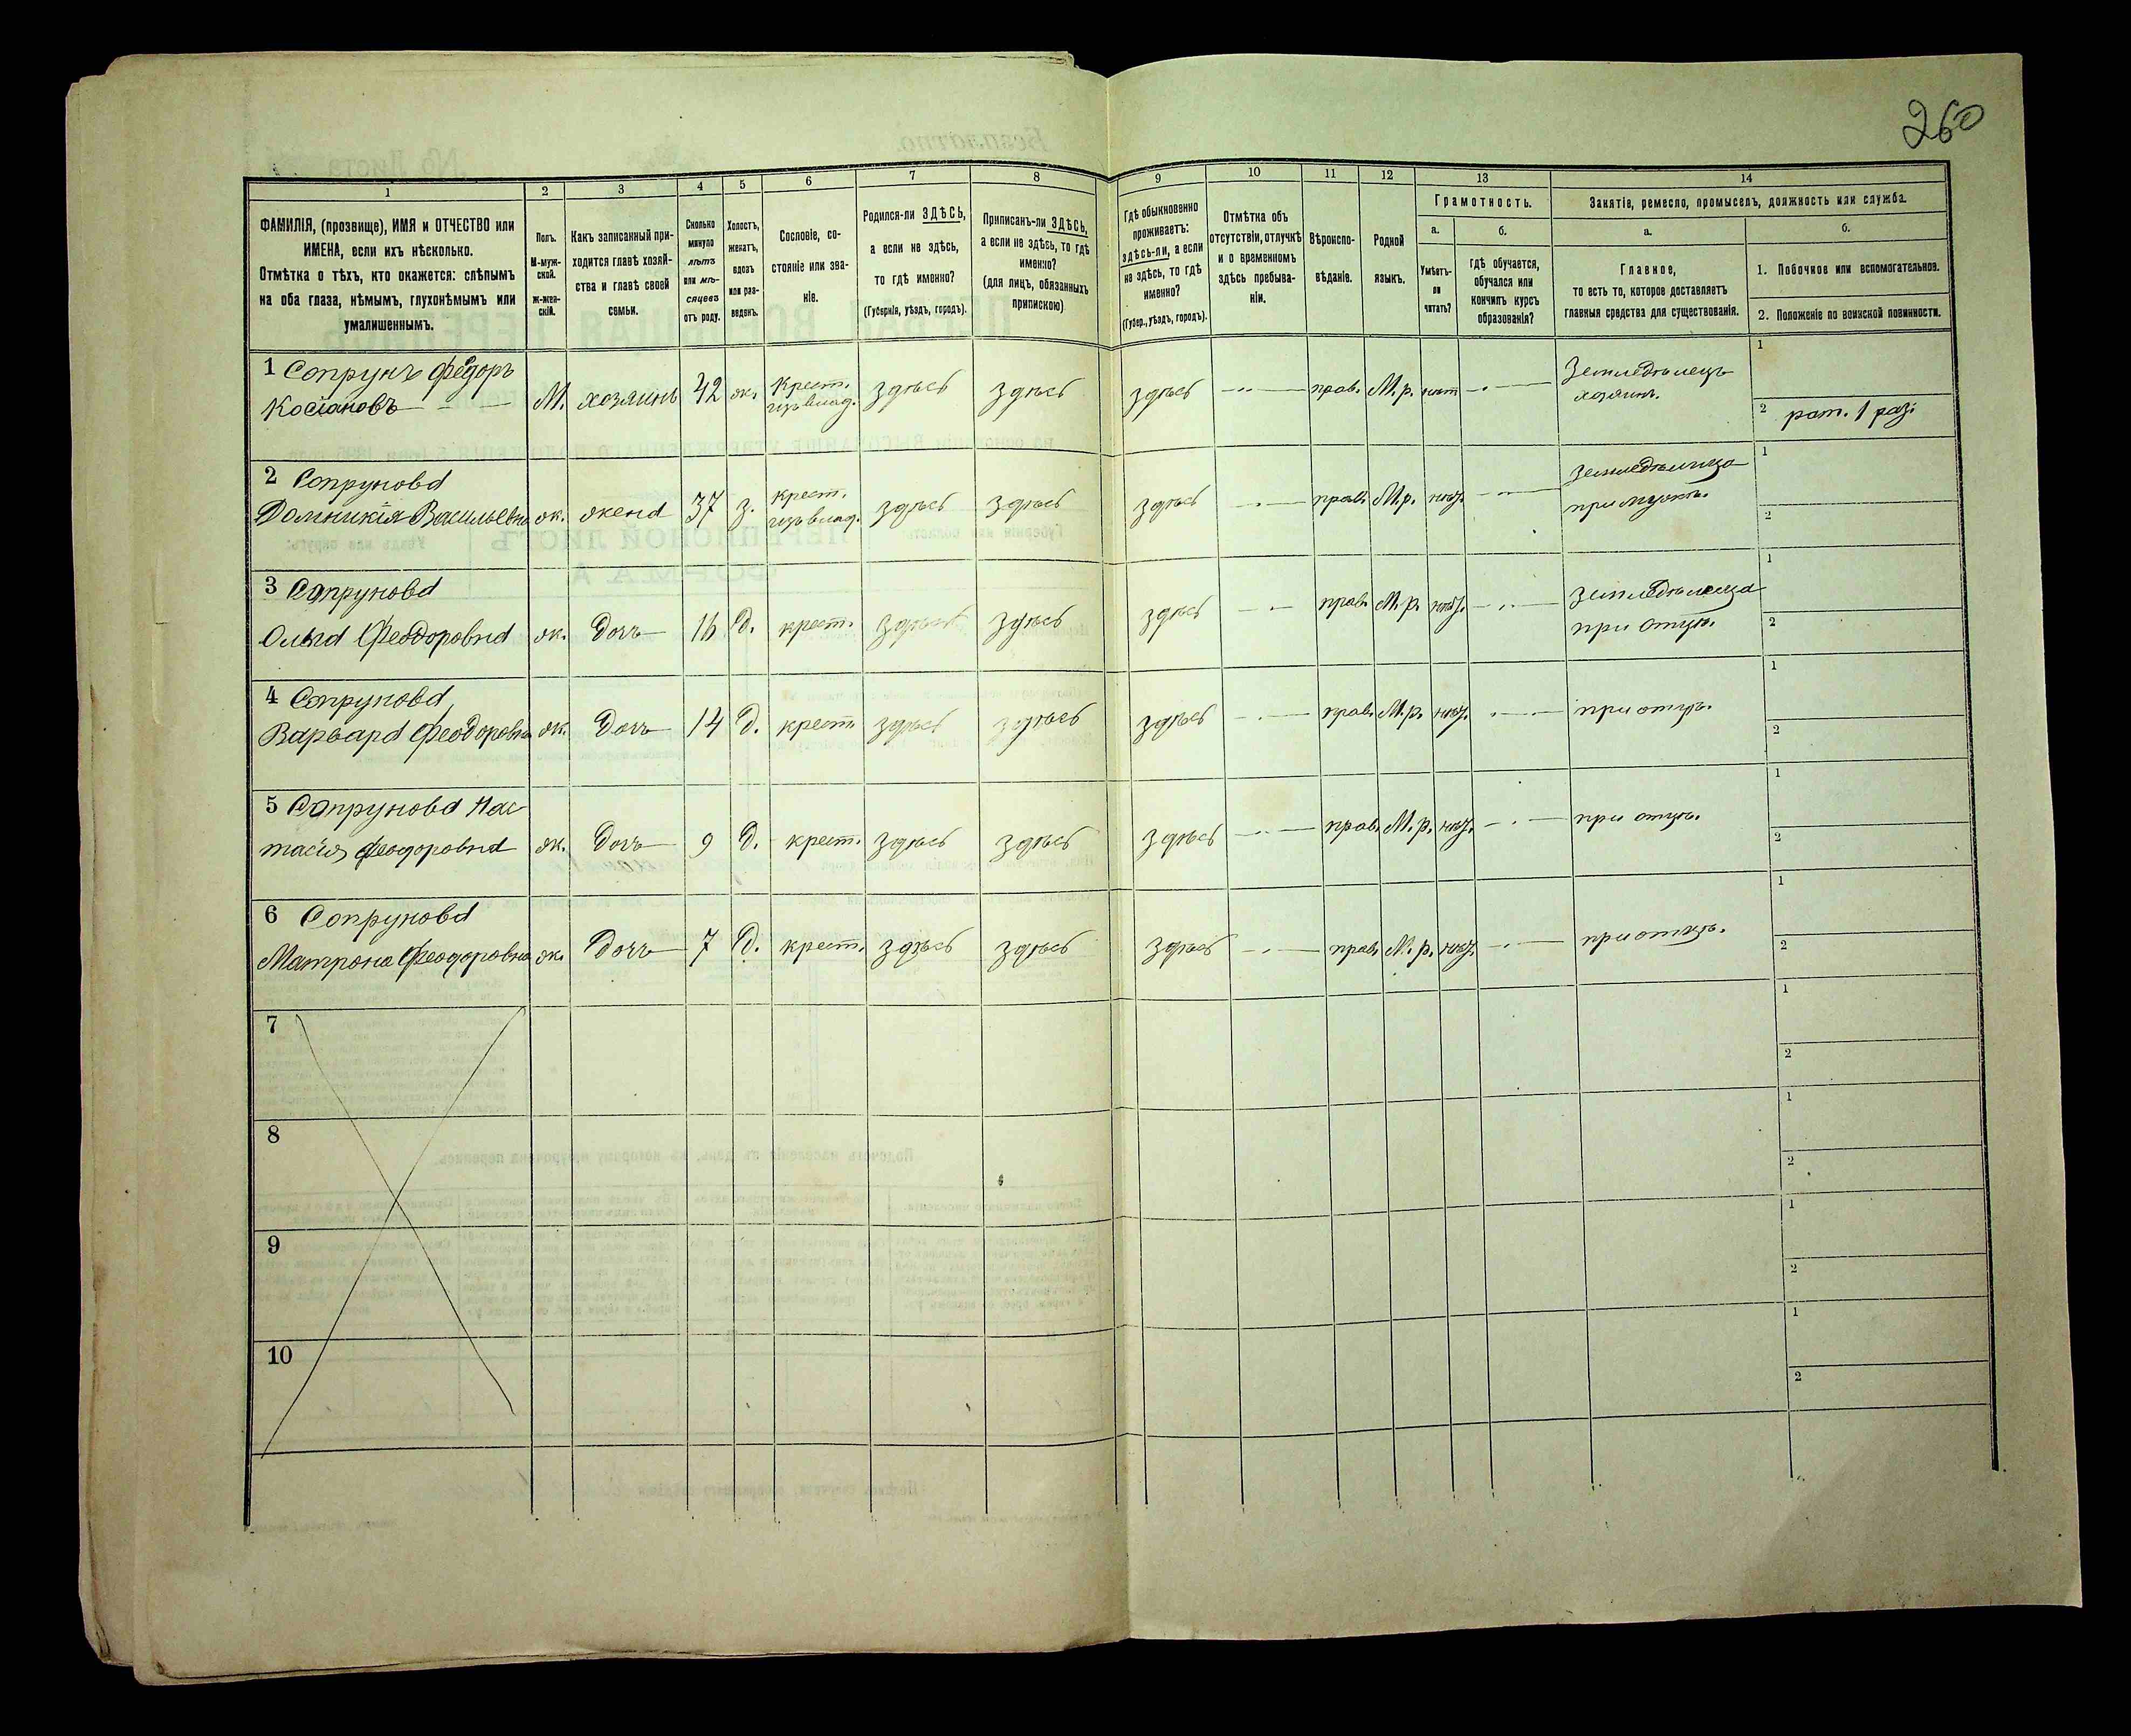 260
1 2 3 4 5 6 7 8 9 10 11 12 13 14
ФАМИЛІЯ, (прозвище), ИМЯ и ОТЧЕСТВО или
ИМЕНА, если ихъ нѣсколько.
Отмѣтка о тѣхъ, кто окажется: слѣпымъ
на оба глаза, нѣмымъ, глухонѣмымъ или
умалишеннымъ.
Полъ.
М-муж-
ской.
ж-жен-
скій.
Какъ записанный при-
ходится главѣ хозяй-
ства и главѣ своей
семьи.
Сколько
минуло
лѣтъ
или мѣ-
сяцевъ
отъ роду.
Холостъ,
женатъ,
вдовъ
или раз-
веденъ.
Сословіе, со-
стояніе или зва-
ніе.
Родился-ли ЗДѢСЬ,
а если не здѣсь,
то гдѣ именно?
(Губернія, уѣздъ, городъ).
Приписанъ-ли ЗДѢСЬ,
а если не здѣсь, то гдѣ
именно?
(для лицъ, обязанныхъ
припискою)
Гдѣ обыкновенно
проживаетъ:
здѣсь-ли, а если
не здѣсь, то гдѣ
именно?
(Губер., уѣздъ, городъ).
Отмѣтка объ
отсутствіи, отлучкѣ
и о временномъ
здѣсь пребыва-
ніи.
Вѣроиспо-
вѣданіе.
Родной
языкъ.
Грамотность.
а.
Умѣетъ-
ли
читать?
б.
гдѣ обучается,
обучался или
кончилъ курсъ
образованія?
Занятіе, ремесло, промыселъ, должность или служба.
а.
Главное,
то есть то, которое доставляетъ
главныя средства для существованія.
б.
1. Побочное или вспомогательное.
2. Положеніе по воинской повинности.
1 Сопрунъ Федоръ
Косіановъ
М. хозяинъ 42 ж. крест. здѣсь здѣсь здѣсь прав. М.р. нѣт Земледѣлецъ 1
изъ влад. хозяинъ. 2 рат. 1 раз.
2 Сопрунова
Домникія Васильевна ж. жена 37 з. крест. здѣсь здѣсь здѣсь прав. М.р. Земледѣлица 1
изъ влад. при мужѣ. 2
3 Сопрунова
Ольга Феодоровна ж. дочь 16 д. крест. здѣсь здѣсь здѣсь прав. М.р. Земледѣлица 1
при отцѣ. 2
4 Сопрунова
Варвара Феодоровна ж. дочь 14 д. крест. здѣсь здѣсь здѣсь прав. М.р. при отцѣ. 1
2
5 Сопрунова Нас
тасія Феодоровна ж. дочь 9 д. крест. здѣсь здѣсь здѣсь прав. М.р. при отцѣ. 1
2
6 Сопрунова
Матрона Феодоровна ж. дочь 7 д. крест. здѣсь здѣсь здѣсь прав. М.р. при отцѣ. 1
2
7 1
2
8 1
2
9 1
2
10 1
2